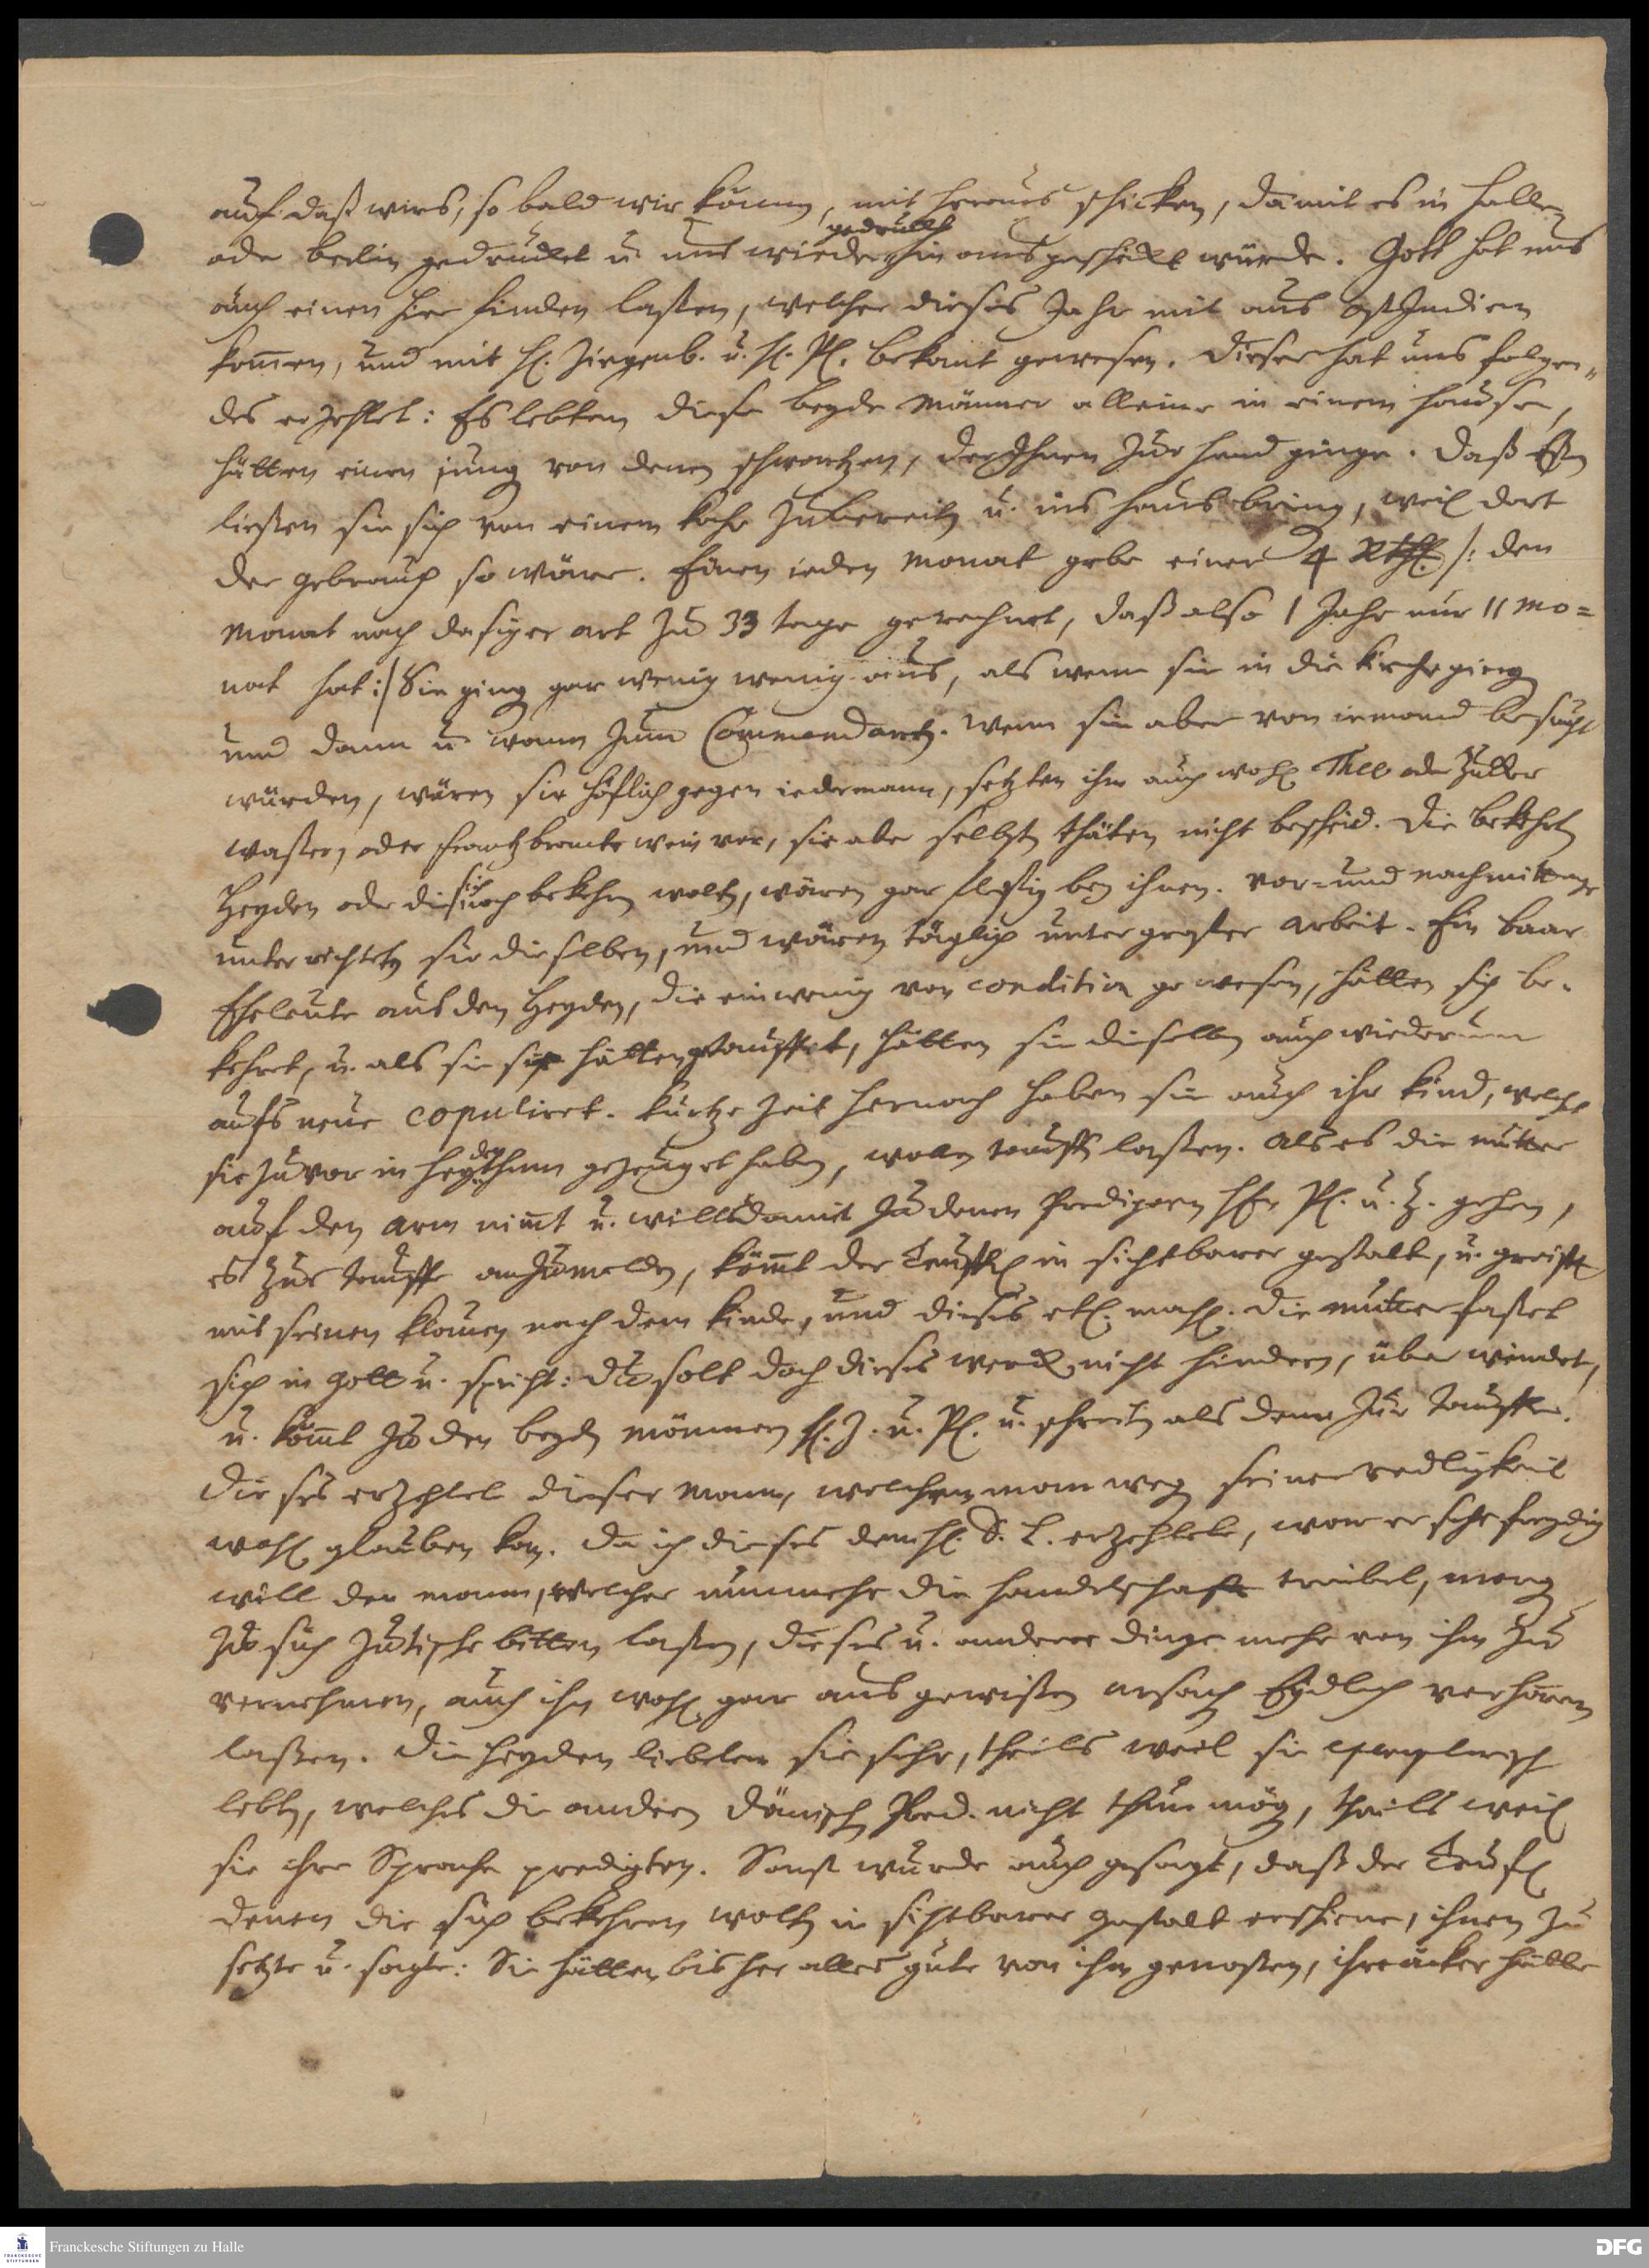 auch daß wirs, so bald wir können, mit heraus schicken, damit es in Halle
oder Berlin gedruckt u. uns wieder gedruckt hin aus geschickt würde. Gott hat uns
auch einen hier finden laßen, welcher dieses Jahr mit aus Ost Indien
kom̅en, und mit H. Ziegenb. u. H. Pl. bekant gewesen. Dieser hat uns folgen„
des erzehlet: Es lebten diese beyde Männer alleine in einem hause,
hätten einen jung von denen schwartzen, der Ihnen zur hand ginge. Daß Eßen
ließen sie sich von einem koche zubereiten u. ins haus bring, weil dort
der gebrauch so wäre. Einen ieden Monat gebe einer 4 Rthl. /: den
Monat nach dasiger art zu 33 tage gerechnet, daß also 1 Jahr nur 11 Mo=
nat hat :/ Sie ging gar wenig wenig aus, als wenn sie in die kirche gieng
und dann u. wann zum Commendanten. Wenn sie aber von iemand besucht
würden, wären sie höflich gegen iedermann, setzten ihm auch wohl Thee oder Zucker
waßer, oder frantzbrantewein vor, sie aber selbst thäten nicht bescheid. Die bekehrten
Heyden oder die sich noch bekehren wolten, wären gar fleißig bey ihnen. Vor- und nachmittage
unterrichteten sie dieselben, und wären täglich unter großer arbeit. Ein baar
Eheleute aus den Heyden, die ein wenig von condition gewesen, hätten sich be-
kehret, u. als sie sie hätten getauffet, hätten sie dieselben auch wiederum
aufs neue copuliret. Kurtze Zeit hernach haben sie auch ihr kind, welches
sie zuvor in Heydenthum gezeuget haben, wollen tauffen laßen. Als es die mutter
auf den arm nim̅t u. will damit zu denen Predigern HEn Pl. u. Z. gehen,
es zur tauffe anzumelden, köm̅t der Teuffel in sichtbarer gestalt, u. greifft
mit seinen klauen nach dem kinde, und dieses etl. mahl. Die mutter faßet
sich in Gott u. spricht: Du solt doch dieses werck nicht hindern, überwindet,
u. köm̅t zu den beyden männern H. Z. u. Pl. u. schreiten als denn zur Tauffe.
Dieses erzehlet dieser Mann, welchem man weg seiner redligkeit
wohl glauben kan. Da ich dieses dem H. D. L. erzehlete, war er sehr freydig
will den mann, welcher nunmehr die handelschafft treibet, morg
zu sich zu tische bitten laßen, dieses u. anderer dinge mehr von ihm zu
vernehmen, auch ihn wohl gar aus gewißen ursach Eydlich verhören
laßen. Die Heyden liebeten sie sehr, theils weil sie exemplarisch
lebten, welches die andern Dänisch Pred. nicht thun mög, theils weil
sie ihre Sprache predigten. Sonst wurde auch gesagt, daß der Teufel
denen die sich bekehren wolten in sichtbarer gestalt erschiene, ihnen zu
setzte u. sagte: Sie hätten bisher alles gute von ihm genoßen, ihre äcker hätte
Franckesche Stiftungen zu Halle
DFG